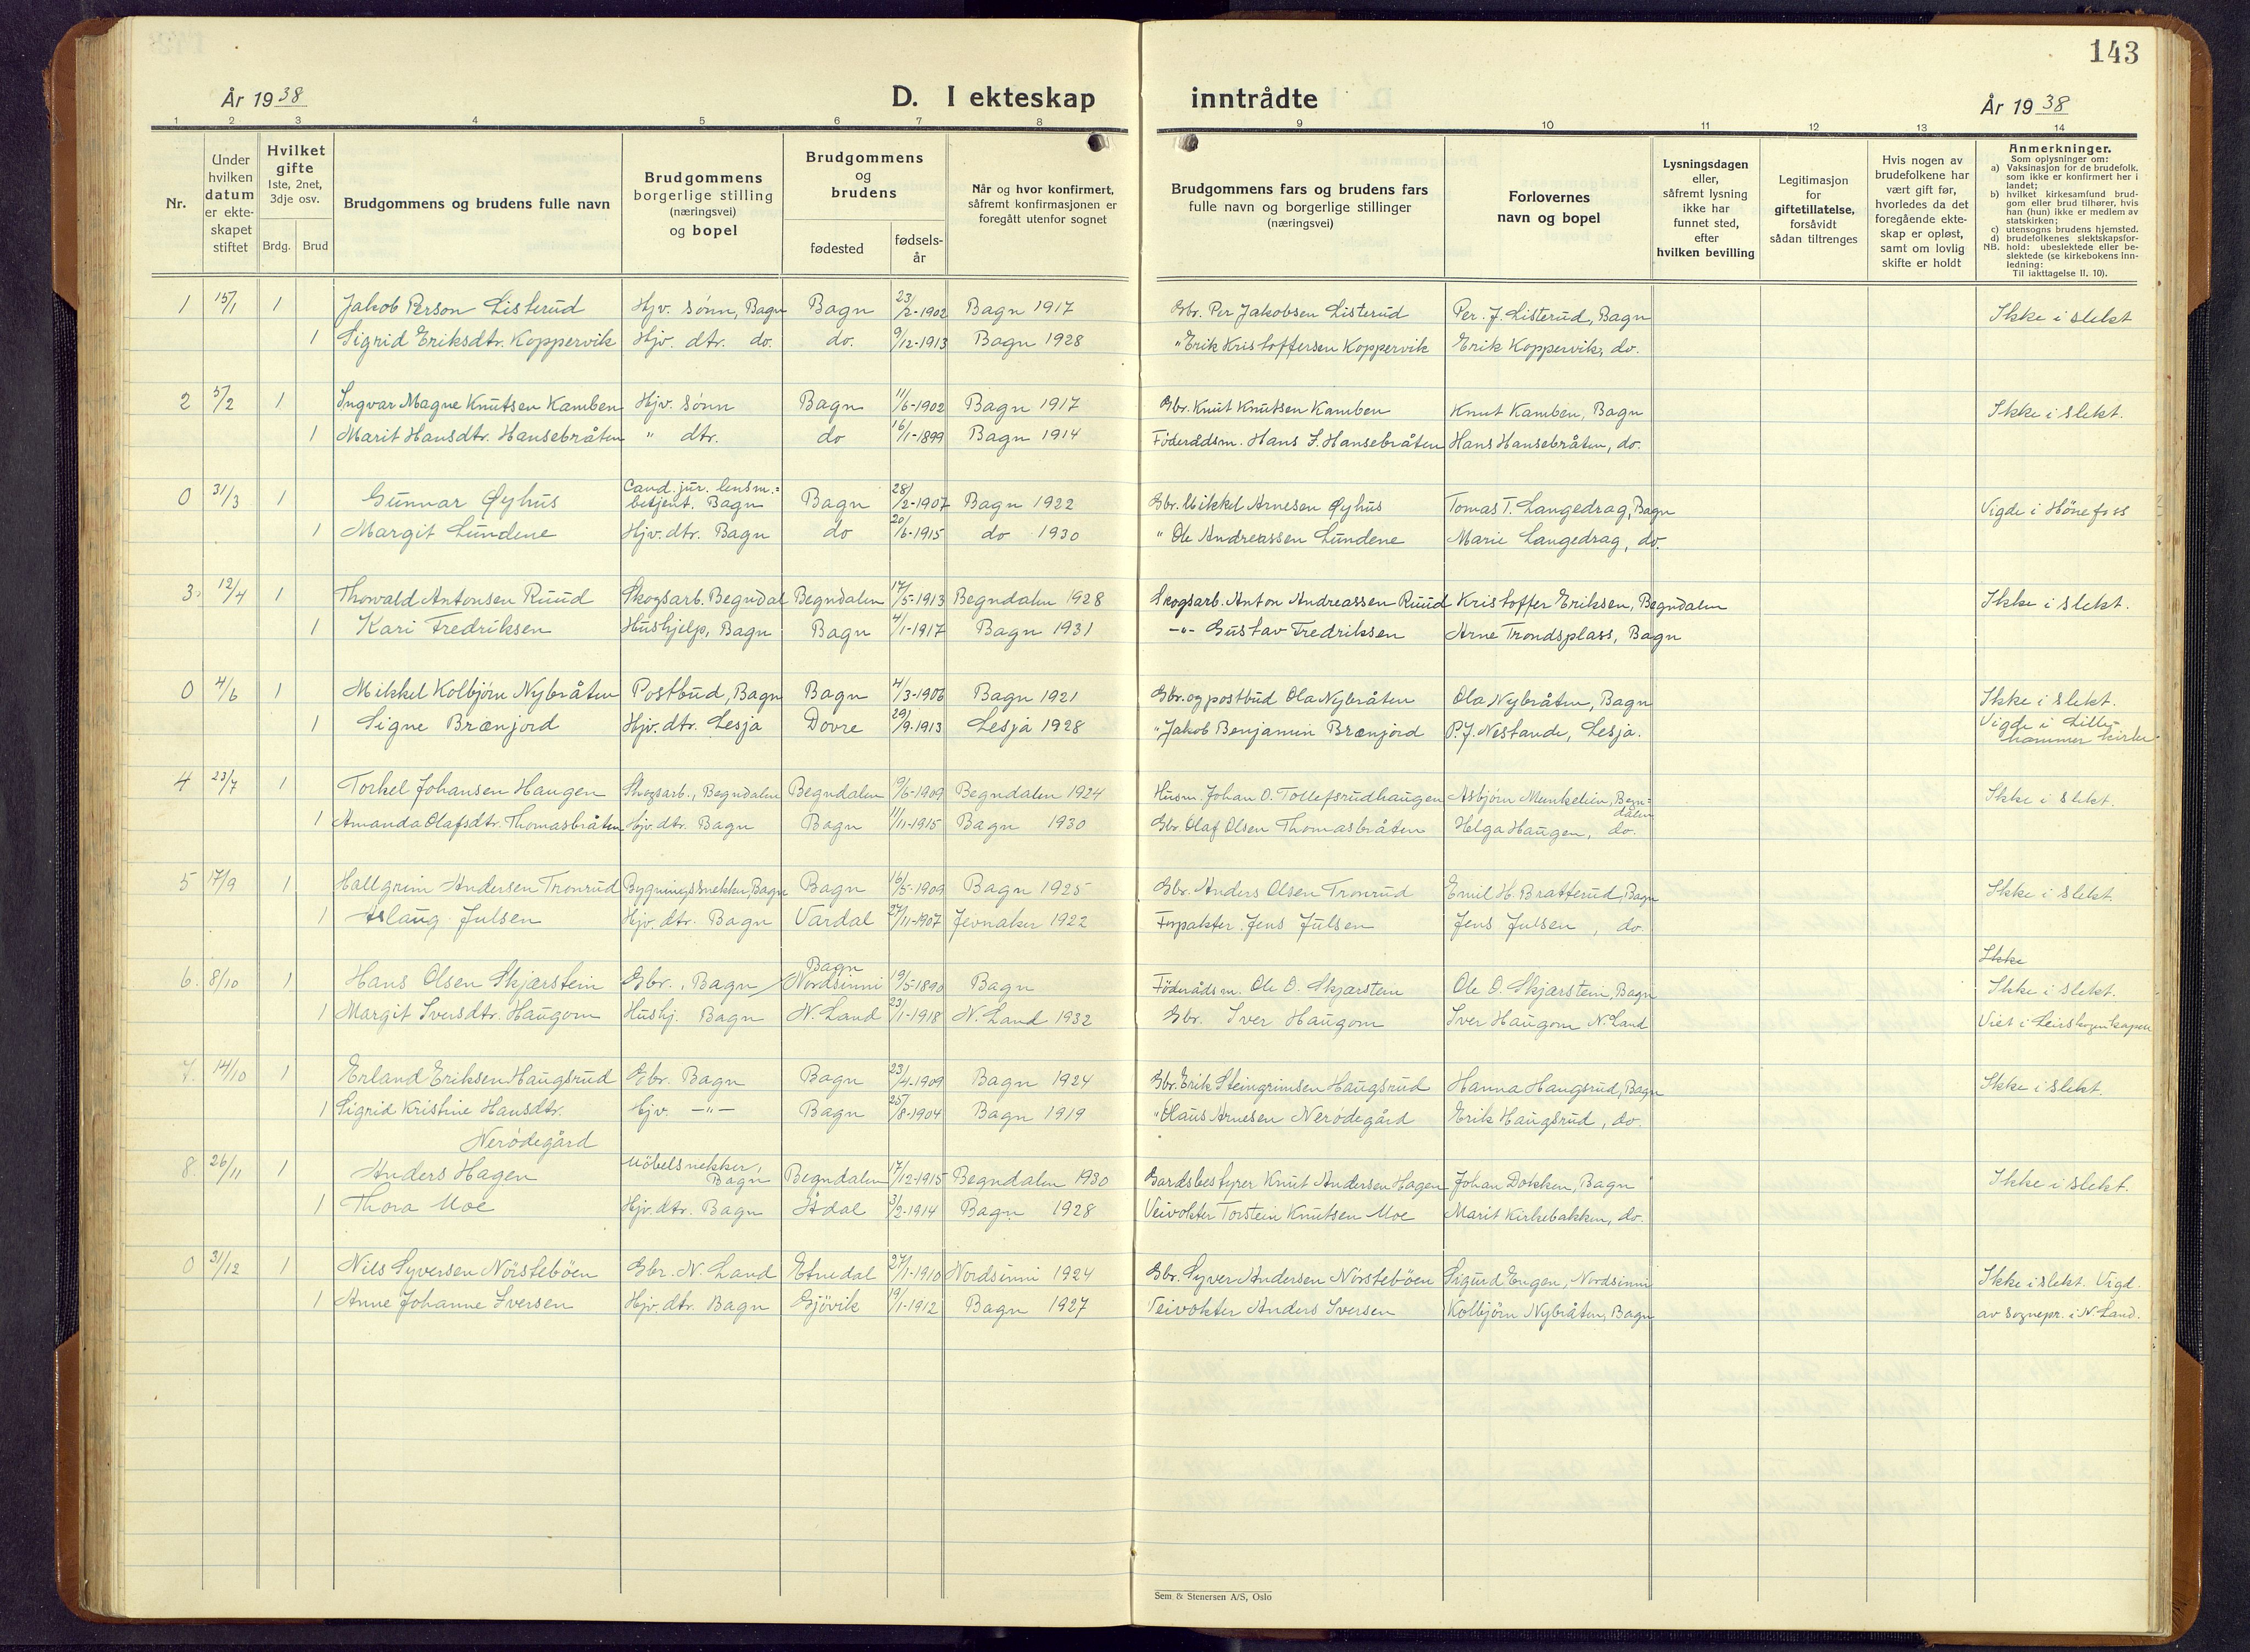 143
År 1938
D. I ekteskap inntrådte
År 1938
1 2 3 4 5 6 7 8 9 10 11 12 13 14
Nr.
Under hvilken datum er ekte-skapet stiftet
Hvilket gifte
1ste, 2net, 3dje osv.
Brdg. Brud
Brudgommens og brudens fulle navn
Brudgommens borgerlige stilling (næringsvei) og bopel
Brudgommens og brudens
fødested
fødsels-år
Når og hvor konfirmert, såfremt konfirmasjonen er foregått utenfor sognet
Brudgommens fars og brudens fars fulle navn og borgerlige stillinger (næringsvei)
Forlovernes navn og bopel
Lysningsdagen eller, såfremt lysning ikke har funnet sted, efter hvilken bevilling
Legitimasjon for giftetillatelse, forsåvidt sådan tiltrenges
Hvis nogen av brudefolkene har vært gift før, hvorledes da det foregående ekte-skap er opløst, samt om lovlig skifte er holdt
Anmerkninger.
Som oplysninger om:
a) Vaksinasjon for de brudefolk, som ikke er konfirmert her i landet;
b) hvilket kirkesamfund brud-gom eller brud tilhører, hvis han (hun) ikke er medlem av statskirken;
c) utensogns brudens hjemsted.
d) brudefolkenes slektskapsfor-hold: ubeslektede eller be-slektede (se kirkebokens inn-ledning:
NB. Til iakttagelse II, 10).
1 15/1 1 Jakob Person Listerud Hjv. sønn, Bagn Bagn 23/2-1902 Bagn 1917 Gbr. Per Jakobsen Listerud Per. J. Listerud, Bagn Ikke i slekt
1 Sigrid Eriksdtr. Koppervik Hjv. dtr. do. do. 9/12-1913 Bagn 1928 " Erik Kristoffersen Koppervik Erik Koppervik, do.
2 5/2 1 Ingvar Magne Knutsen Kamben Hjv. sönn Bagn 11/6-1902 Bagn 1917 Gbr. Knut Knutsen Kamben Knut Kamben, Bagn Ikke i slekt.
1 Marit Hansdtr. Hansebråten " dtr. do 16/1-1899 Bagn 1914 Föderådsm. Hans S. Hansebråten Hans Hansebråten, do.
0 31/3 1 Gunnar Øyhus Cand. jur. lensm.= betjent. Bagn Bagn 28/2-1907 Bagn 1922 Gbr. Mikkel Arnesen Øyhus Tomas T. Langedrag, Bagn Vigde i Hönefoss
1 Margit Lundene Hjv. dtr. Bagn do 20/6-1915 do 1930 " Ole Andreassen Lundene Marie Langedrag, do.
3. 12/4 1 Thorvald Antonsen Ruud Skogsarb. Begndal Begndalen 17/5-1913 Begndalen 1928 Skogsarb. Anton Andreassen Ruud Kristoffer Eriksen, Begndalen Ikke i slekt.
1 Kari Fredriksen Hushjelp, Bagn Bagn 4/1-1917 Bagn 1931 -"- Gustav Fredriksen Arne Trondsplass, Bagn
0 4/6 1 Mikkel Kolbjörn Nybråten Postbud, Bagn Bagn 4/3-1906 Bagn 1921 Gbr. og postbud Ola Nybråten Ola Nybråten, Bagn Ikke i slekt.
1 Signe Brænjord Hjv. dtr. Lesja Dovre 29/9-1913 Lesja 1928 " Jakob Benjamin Brænjord P. J. Nestande, Lesja. Vigde i Lille-
hammer kirke
4 23/7 1 Torkel Johansen Haugen Skogsarb., Begndalen Begndalen 9/6-1909 Begndalen 1924 Husm. Johan O. Tollefsrudhaugen Asbjörn Munkelien, Begn=dalen Ikke i slekt.
1 Amanda Olafsdtr. Thomasbråten Hjv. dtr. Bagn Bagn 11/11-1915 Bagn 1930 Gbr. Olaf Olsen Thomasbråten Helga Haugen, do.
5 17/9 1 Hallgrim Andersen Tronrud Bygningssnekker, Bagn Bagn 16/5-1909 Bagn 1925 Gbr. Anders Olsen Tronrud Emil H. Bratterud, Bagn Ikke i slekt.
1 Aslaug Julsen Hjv. dtr. Bagn Vardal 27/11-1907 Jevnaker 1922 Forpakter Jens Julsen Jens Julsen, do.
Ikke
6. 8/10 1 Hans Olsen Skjærstein Gbr., Bagn Bagn Nordsinni 19/5-1890 Bagn Föderådsm. Ole O. Skjærstein Ole O. Skjærstein, Bagn Ikke i slekt.
1 Margit Iversdtr. Haugom Hushj. Bagn N. Land 23/1-1918 N. Land 1932 Gbr. Iver Haugom Iver Haugom N. Land Viet i Leirskogen kapell
7. 14/10 1 Erland Eriksen Haugsrud Gbr. Bagn Bagn 23/4-1909 Bagn 1924 Gbr. Erik Steingrimsen Haugsrud Hanna Haugsrud, Bagn Ikke i slekt.
1 Sigrid Kristine Hansdtr. Hjv. -"- Bagn 25/8-1904 Bagn 1919 " Hans Arnesen Nerödegård Erik Haugsrud, do.
Nerödegård
8. 26/11 1 Anders Hagen Möbelsnekker, Bagn Begndalen 17/12-1915 Begndalen 1930 Gardsbestyrer Knut Andersen Hagen Johan Dokken, Bagn Ikke i slekt.
1 Thora Moe Hjv. dtr. Bagn Ådal 3/2-1914 Bagn 1928 Veivokter Torstein Knutsen Moe Marit Kirkebakken, do.
0 31/12 1 Nils Syversen Nörsteböen Gbr. N. Land Etnedal 27/1-1910 Nordsinni 1924 Gbr. Syver Andersen Nörsteböen Sigurd Engen, Nordsinni Ikke i slekt. Vigd.
1 Anne Johanne Iversen Hjv. dtr. Bagn Gjövik 19/1-1912 Bagn 1927 Veivokter Anders Iversen Kolbjörn Nybråten, Bagn av sognepr. i N. Land.
Sem & Stenersen A/S, Oslo